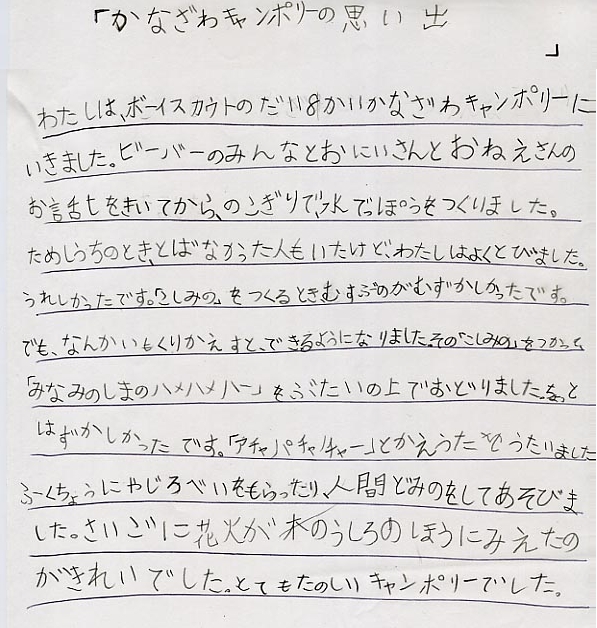 「かなざわキャンポリーの思い出
」
わたしは、ボーイスカウトのだい8かいかなざわキャンポリーに
いきました。ビーバーのみんなとおにいさんとおねえさんの
お話しをきいてから、のこぎりで、水でっぽうをつくりました。
ためしうちのとき、とばなかった人もいたけど、わたしはよくとびました。
うれしかったです。「こしみの」をつくるときむすぶのがむずかしかったです。
でも、なんかいもくりかえすと、できるようになりました。その「こしみの」をつかって
「みなみのしまのハメハメハー」をぶたいの上でおどりました。
はずかしかったです。「アチャパチャノチャー」とかえうたをうたいました
ふーくちょうにやじろべいをもらったり、人間どみのをしてあそびま
した。さいごに花火が木のうしろのほうにみえたの
がきれいでした。とてもたのしいキャンポリーでした。